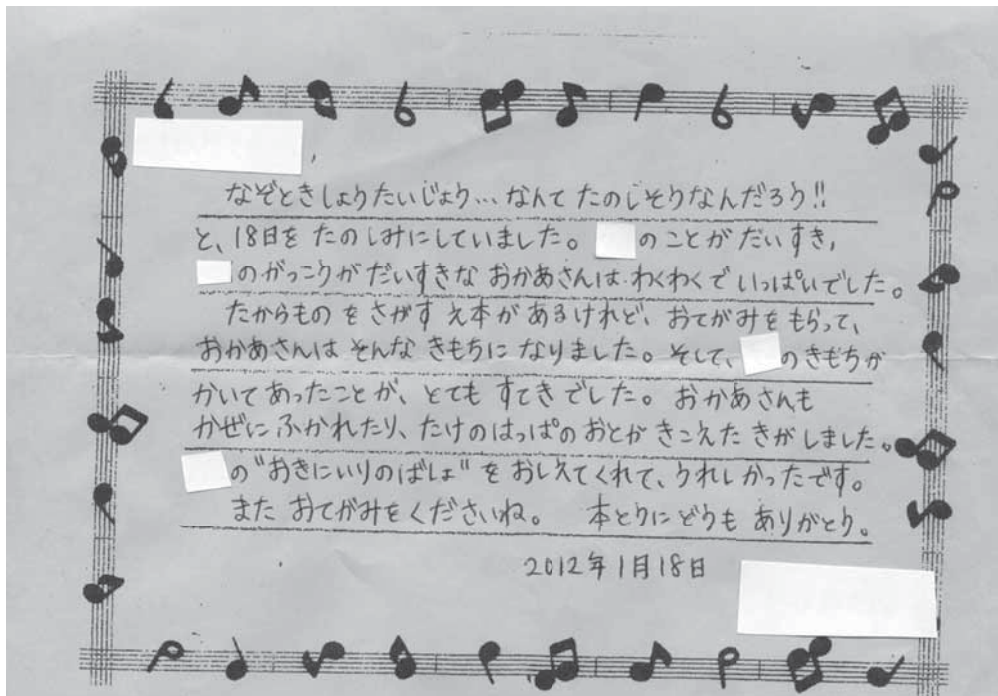 なぞときしょうたいじょう…なんてたのしそうなんだろう!!
と、18日をたのしみにしていました。のことがだいすき,
のがっこうがだいすきなおかあさんは、わくわくでいっぱいでした。
たからものをさがすえ本があるけれど、おてがみをもらって、
おかあさんはそんなきもちになりました。そして、のきもちが
かいてあったことが、とてもすてきでした。おかあさんも
かぜにふかれたり、たけのはっぱのおとがきこえたきがしました。
の"おきにいりのばしょ"をおしえてくれて、うれしかったです。
またおてがみをくださいね。本とうにどうもありがとう。
2012年1月18日